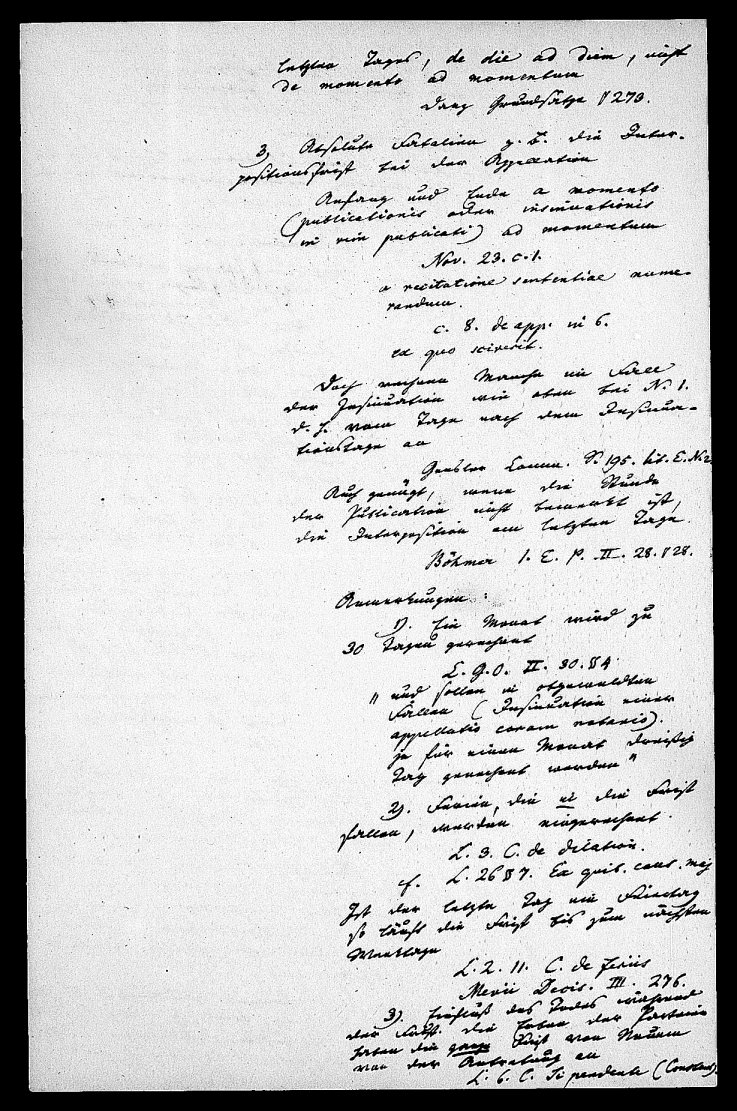 letzten Tages, de die ad diem, nicht
de momento ad momentum
Danz Grundsätze § 273.
3) Absolute Fatalien z. B. die Inter-
positionsfrist bei der Appellation
Anfang und Ende a momento
(publicationis oder insinuationis
in vim publicati) ad momentum
Nov. 23. c. 1.
a recitatione sententiae nume-
randum.
c. 8. de app. in 6.
ex quo sciverit.
Doch rechnen Manche im Falle
der Insinuation wie oben bei N. 1.
d. h. vom Tage nach dem Insinua-
tionstage an
Gensler Comm. S. 195. lit. E. N. 2.
Auch genügt, wenn die Stunde
der Publication nicht bemerkt ist,
die Interposition am letzten Tage.
Böhmer I. E. P. II. 28. § 28.
Anmerkungen:
1). Ein Monat wird zu
30 Tagen gerechnet
C. G. O. II. 30. § 4
"und sollen in obgemeldten
Fällen (Insinuation einer
appellatio coram notario).
je für einen Monat dreißig
Tag gerechnet werden"
2). Ferien, die in die Frist
fallen, werden eingerechnet.
L. 3. C. de dilation.
cf. L. 26 § 7. Ex quib. caus. maj
Ist der letzte Tag ein Feiertag
so läuft die Frist bis zum nächsten
Werktage
L. 2. 11. C. de feriis
Mevii Decis. III. 276.
3). Einfluß des Todes während
der Frist. Die Erben der Partein
haben die ganze Frist von Neuem
von der Antretung an
L. 6. C. Si pendente (Constant).